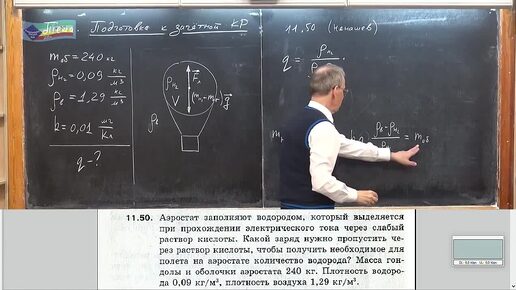 Подготовка к зачётной КР
m об = 240 кг
ρ H₂ = 0,09 кг/м³
ρ в = 1,29 кг/м³
k = 0,01 мг/Кл
q - ?
ρ H₂
V
ρ в
F A
g
11.50 (Ненашев)
q = ρ H₂
= m об
11.50. Аэростат заполняют водородом, который выделяется
при прохождении электрического тока через слабый
раствор кислоты. Какой заряд нужно пропустить че-
рез раствор кислоты, чтобы получить необходимое для
полета на аэростате количество водорода? Масса гон-
долы и оболочки аэростата 240 кг. Плотность водоро-
да 0,09 кг/м³, плотность воздуха 1,29 кг/м³.